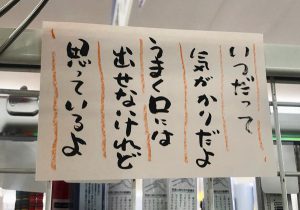 いつだって
気がかりだよ
うまく口には
出せないけれど
思っているよ